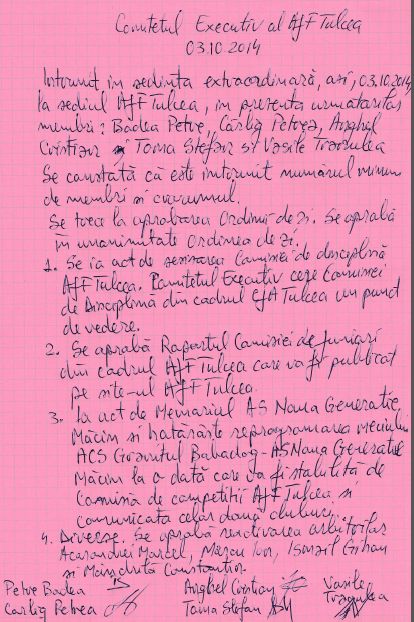 Comitetul Executiv al AJF Tulcea
03.10.2014
Intrunit in sedinta extraordinară, azi, 03.10.2014
la sediul AJF Tulcea, in prezenta urmatorilor
membri: Badea Petre, Carlig Petrea, Anghel
Cristian si Toma Stefan si Vasile Trandulea
Se constată că este intrunit numărul minim
de membri si cvorumul.
Se trece la aprobarea Ordinii de zi. Se aprobă
in unanimitate Ordinea de zi.
1. Se ia act de sesizarea Comisiei de disciplină
AJF Tulcea. Comitetul Executiv cere Comisiei
de Disciplină din cadrul AJF Tulcea un punct
de vedere.
2. Se aprobă Raportul Comisiei de juniori
din cadrul AJF Tulcea care va fi publicat
pe site-ul AJF Tulcea.
3. Ia act de Memoriul AS Noua Generatie
Măcin si hotărăste reprogramarea meciului
ACS Granitul Babadag - AS Noua Generatie
Măcin la o dată care va fi stabilită de
Comisia de competitii AJF Tulcea si
comunicata celor două cluburi.
4. Diverse. Se aprobă reactivarea arbitrilor
Acasandrei Marcel, Ion, Ismail Gihan
si Mândrută Constantin.
Petre Badea Anghel Cristian Vasile
Carlig Petrea Toma Stefan Trandulea